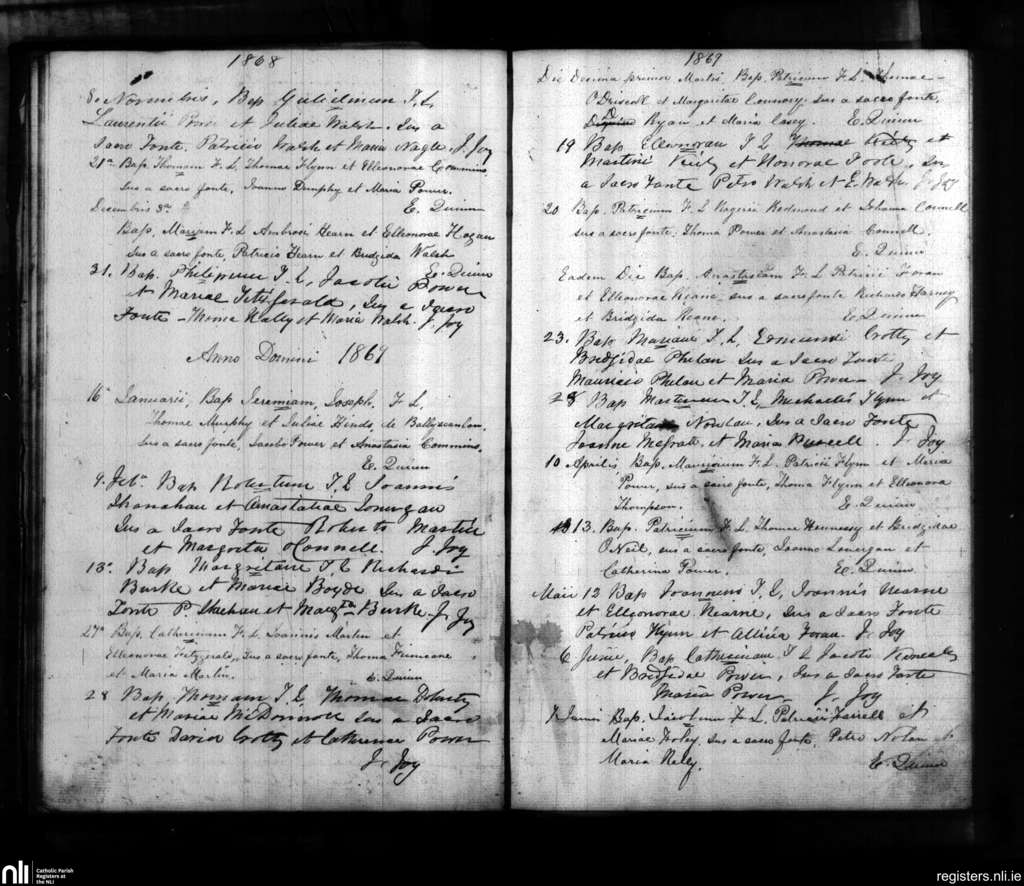 1868
8. Novembris, Bap Gulielmum F. L.
Laurentii Power et Juliae Walsh. Sus a
Sacro Fonte, Patricio Walsh et Maria Nagle. J. Joy
21a Bap. Thomam F. L. Thomae Flynn et Elleonorae Commins
sus a sacro fonte, Joanno Dunphy et Maria Power.
E. Quinn
Decembris 3a
Bap. Mariam F. L. Ambrosi Hearn et Elleonorae Hogan
sus a sacro fonte, Patricio Hearn et Bridgida Walsh
E. Quinn
31. Bap. Philipum F. L. Jacobi Power
et Mariae Fitzgerald, Sus a Sacro
Fonte - Thoma Nally et Maria Walsh. J. Joy
Anno Domini 1869
16 Januarii, Bap Jeremiam, Joseph. F. L.
Thomae Murphy et Juliae Hinds, de Ballyscanlon.
sus a sacro fonte, Jacobo Power et Anastasia Commins.
E. Quinn
9. Feb. Bap Robertum F. L. Joannis
Shanahan et Anastatiae Lonergan
Sus a Sacro Fonte Roberto Martin
et Margarita O'Connell. J. Joy
13a Bap Margaritam F. L. Richardi
Burke et Mariae Boyde Sus a Sacro
Fonte P. Meehan et Margta Burke J. Joy
27a Bap. Catherinam F. L. Joannis Martin et
Elleonorae Fitzgerald, sus a sacro fonte, Thoma
et Maria Martin. E. Quinn
28 Bap. Thomam F. L. Thomae Doherty
et Mariae McDonnell Sus a Sacro
Fonte David Crotty et Catherina Power
J. Joy
1869
Die Decima prima Martii Bap. Patricium F. L. Thomae
O'Driscoll et Margaritae Connory. sus a sacro fonte,
Ryan et Maria Casey. E. Quinn
19 Bap. Elleonoram F. L. Thomae Kiely et
Martini Kiely et Honorae Foote, Sus
a Sacro Fonte Petro Walsh et E. Walsh. J. Joy
20 Bap. Patricium F. L. Rogerii Redmond et Johanna Connell
sus a sacro fonte; Thoma Power et Anastasia Connell.
E. Quinn
Eadem Die Bap. Anastasiam F. L. Patricii Foran
et Elleonorae Keane, sus a sacro fonte Richardo Harney
et Bridgida Keane. E. Quinn
23. Bap Mariam F. L. Edmundi Crotty et
Bridgidae Phelan Sus a Sacro Fonte
Mauricio Phelan et Maria Power J. Joy
28 Bap Martinum F. L. Michaelis Flynn et
Margaritae Nowlan, Sus a Sacro Fonte
McGrath et Maria Purcell. J. Joy
10 Aprilis Bap. Mauricium F. L. Patricii Flynn et Maria
Power, sus a sacro fonte, Thoma Flynn et Elleonora
Thompson. E. Quinn
13. Bap. Patricium F. L. Thomae Hennessy et Bridgidae
O'Neil, sus a sacro fonte, Joanno Lonergan et
Catherina Power. E. Quinn
Maii 12 Bap Joannem F. L. Joannis Nearne
et Elleonorae Nearne, Sus a Sacro Fonte
Patricio Flynn et Allicia Foran J. Joy
6 Junii, Bap Catherinam F. L. Jacobi Kinealy
et Bridgidae Power, Sus a Sacro Fonte
Maria Power J. Joy
7 Junii Bap. Jacobum F. L. Patricii Farrell et
Mariae Foley, sus a sacro fonte, Petro Nolan et
Maria Raley. E. Quinn
nli Catholic Parish
Registers at
the NLI
registers.nli.ie